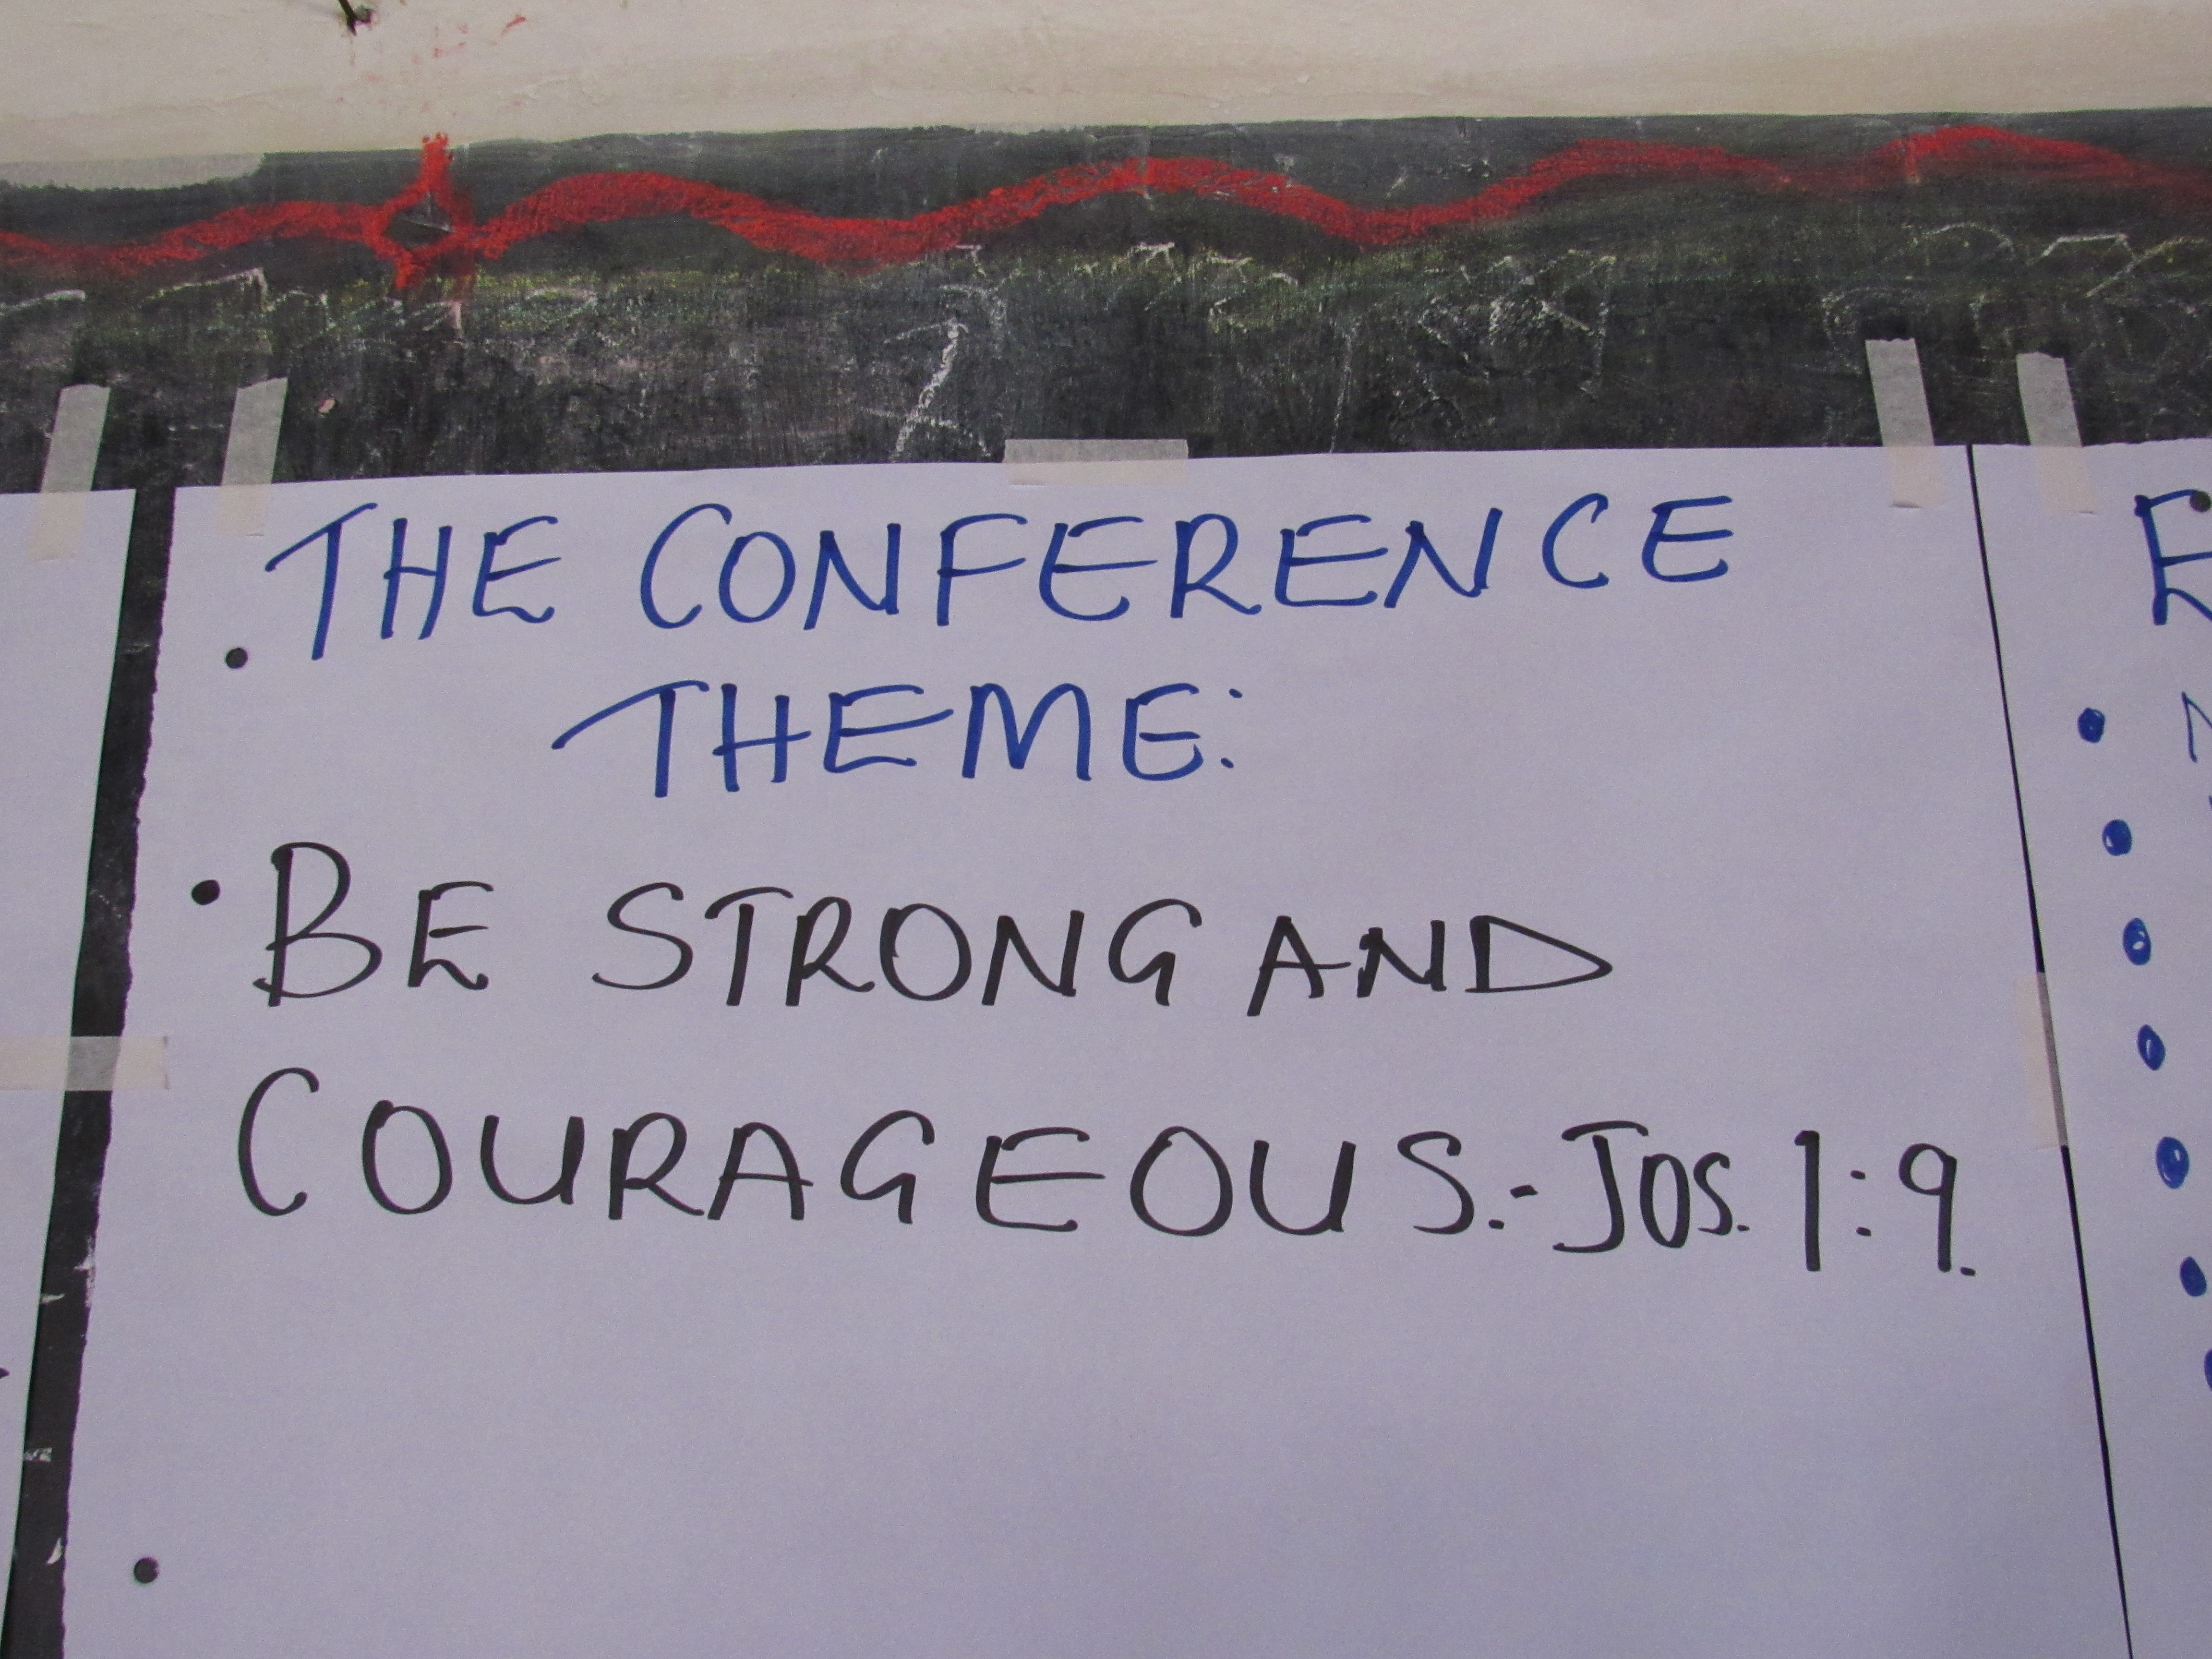 THE CONFERENCE
THEME:
BE STRONG AND
COURAGEOUS.- JOS. 1:9.